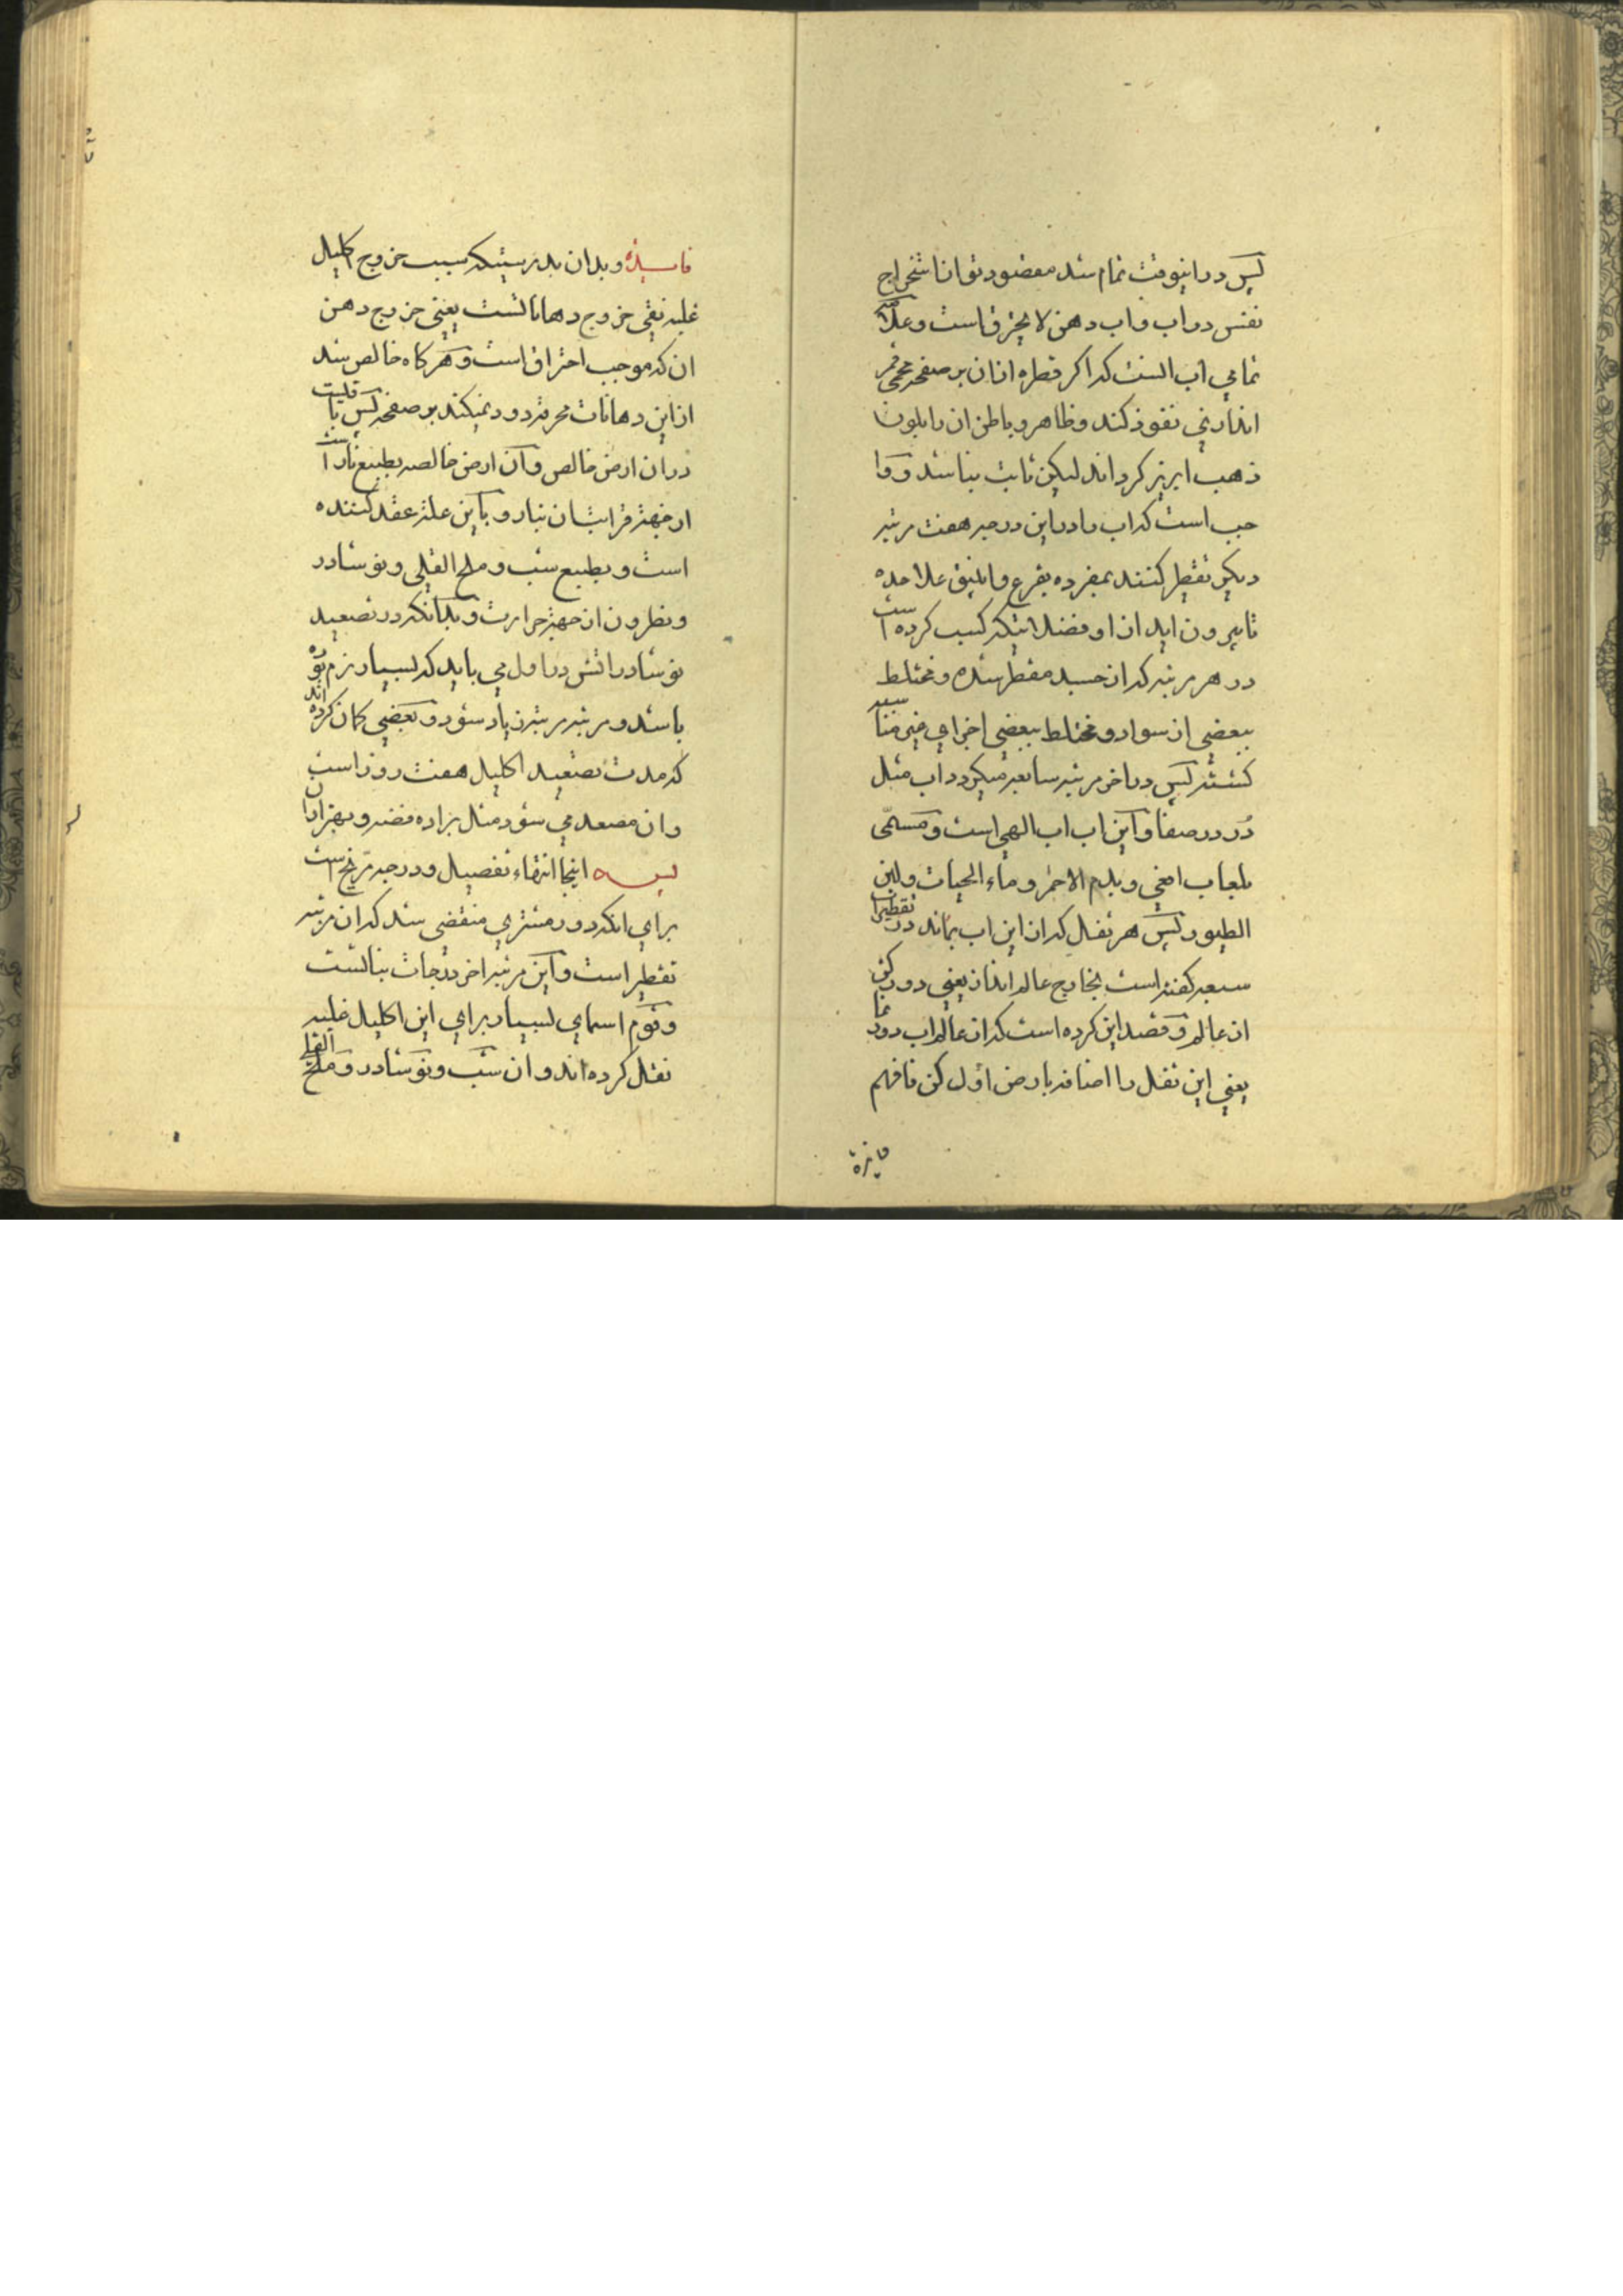 پس در اینوقت تمام شد مقصود تو از استخراج
نفس در اب و اب دهن لا یحترق است و علامة
تمامی اب انست که اکر قطره از ان بر صفحه محمی قمر
اندازنی نفوذ کند و ظاهر و باطن ان را بلون
ذهب ابریز کرداند لیکن ثابت نباشد و وا
جب است که اب را در این درجه هفت مرتبه
دیکر تقطیر کنند بمفرده بقرع و انبیق علا حده
تا بیرون اید از او فضلاتیکه کسب کرده است
در هر مرتبه که از جسد مقطر شده و مختلط
ببعضی از سواد و مختلط ببعضی اجزای غیر مناسبه
کشته پس در اخر مرتبه سابعه میکردد اب مثل
دُر در صفا و این اب اب الهی است و مسمّی
بلعاب افعی و بدم الاحمر و ماء الحیات و لبن
الطیور پس هر ثفل که از این اب بماند در تقطیرات
سبعه کفته است بخارج عالم انداز یعنی دور کن
از عالم و قصد این کرده است که از عالم اب دور نما
یعنی این ثفل را اضافه بارض اول کن فافهم
فایدة
فایدة و بدان بدرستیکه سبب خروج اکلیل
غلبه نقی خروج دهانا تست یعنی خروج دهن
ان که موجب احتراق است و هر کاه خالص شد
از این دهانات محرقه دود نمیکند بر صفحه پس با قلیت
در ان ارض خالص و ان ارض خالصه بطبیع نار است
از جهة قرابتان بنار و باین علة عقد کننده
است و بطبیع شب و ملح القلی و نوشادر
و نطرون از جهة حرارت و بدانکه در تصعید
نوشادر اتش در اول می باید که بسیار نرم بوده
باشد و مرتبه مرتبه زیاد شود و بعضی کمان کرده اند
که مدت تصعید اکلیل هفت روز است
و ان مصعد می شود مثل براده فضه و بهتر از ان
پس اینجا انتهاء تفصیل و درجه مرّیخ است
برای انکه دور مشتری منقضی شد که ان مرتبه
تقطیر است و این مرتبه اخر درجات بناتست
و قوم اسمای بسیار برای این اکلیل غلبه
نقل کرده اند و ان شب و نوشادر و ملح القلی